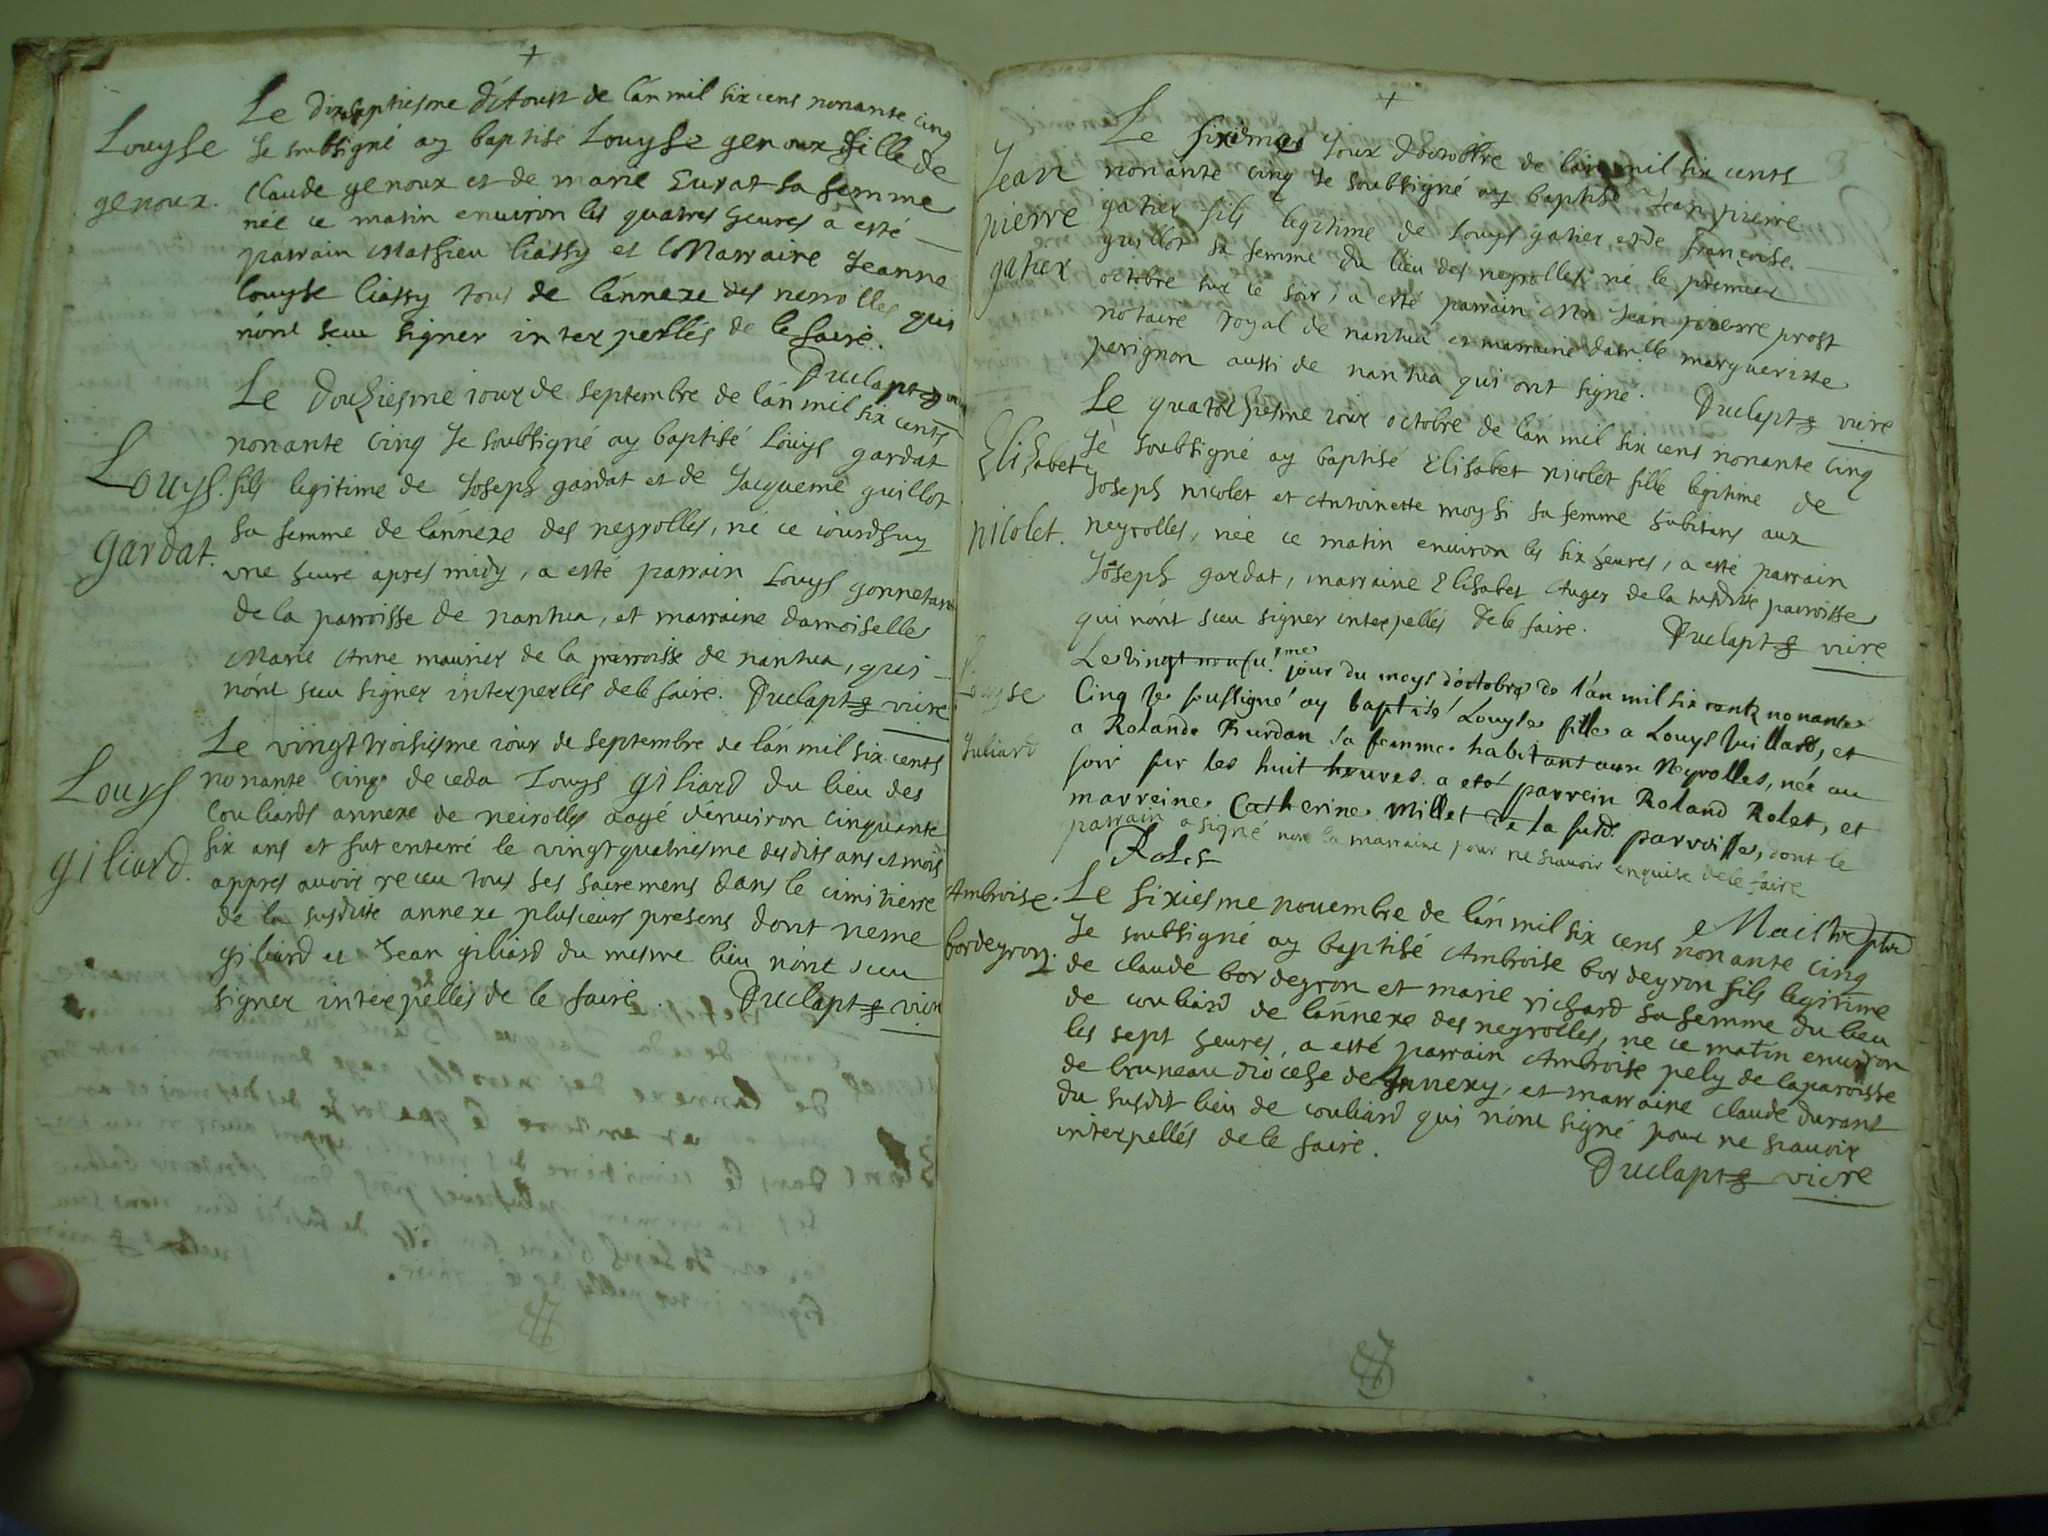 Le dixseptiesme d'Aoust de l'an mil six cens nonante cinq
Louyse
Je soubsigné ay baptisé Louyse genoux fille de
genoux.
Claude genoux et de marie Eurat sa femme
née ce matin environ les quatres heures a esté
parrain Mathieu liassy et Marraine Jeanne
louyse liassy tous de l'annexe des nerrolles qui
n'ont sceu signer interpellés de le faire.
Duclapt vicre
Le douziesme iour de septembre de l'an mil six cents
nonante cinq Je soubsigné ay baptisé Louys gardat
Louys
fils legitime de Joseph gardat et de Jacqueme guillot
gardat.
sa femme de l'annexe des neyrolles, né ce iourdhuy
une heure apres midy, a esté parrain Louys
de la parroisse de nantua, et marraine damoiselle
Marie Anne maurier de la parroisse de nantua, qui
n'ont sceu signer interpellés de le faire. Duclapt vicre
Le vingt troisiesme iour de septembre de l'an mil six cents
Louys
nonante cinq deceda Louys giliard du lieu des
Couliards annexe de neirolles aagé d'environ cinquante
six ans et fut enterré le vingt quatriesme desdits ans et mois
giliard.
appres avoir receu tous ses sacremens dans le cimitierre
de la susditte annexe plusieurs presens dont neme
giliard et Jean giliard du mesme lieu n'ont sceu
signer interpellés de le faire. Duclapt vicre
Le sixiemes Jour d'octobre de l'an mil six cents
Jean
nonante cinq Je soubsigné ay baptisé Jean pierre
pierre
gatier fils legitime de Louys gatier et de françoise
gatier
guillot sa femme du lieu des neyrolles né le premier
octobre sur le soir, a esté parrain Mr Jean pierre prost
notaire royal de nantua et marraine dam.lle margueritte
perignon aussi de nantua qui ont signé. Duclapt vicre
Le quatorziesme iour octobre de l'an mil six cens nonante cinq
Elizabet
Je soubsigné ay baptisé Elisabet nicolet fille legitime de
Joseph nicolet et Antoinette moysi sa femme habitans aux
nicolet.
neyrolles, née ce matin environ les six heures, a esté parrain
Joseph gardat, marraine Elisabet Auger de la susditte parroisse
qui n'ont sceu signer interpellés de le faire. Duclapt vicre
Le vingt neufu.me jour du moys d'octobre de l'an mil six cents nonante
Louyse
Cinq Je soussigné ay baptisé Louyse fille a Louys Juillard, et
Juliard
a Rolande Burdan sa femme habitant aux Neyrolles, née au
soir sur les huit heures. a eté parrein Roland Rolet, et
marreine Catherine Millet de la susd. parroisse, dont le
parrain a signé non la marraine pour ne scavoir enquise de le faire
Rolet
e Maistre pbre
Ambroise
Le sixiesme novembre de l'an mil six cens nonante cinq
bordeyron.
Je soubsigné ay baptisé Ambroise bordeyron fils legitime
de claude bordeyron et marie richard sa femme du lieu
de couliard de l'annexe des neyrolles, né ce matin environ
les sept heures, a esté parrain Ambroise pely de la paroisse
de bruneau diocese de Annexy, et marraine claude durant
du susdit lieu de couliard qui n'ont signé pour ne scavoir
interpellés de le faire.
Duclapt vicre